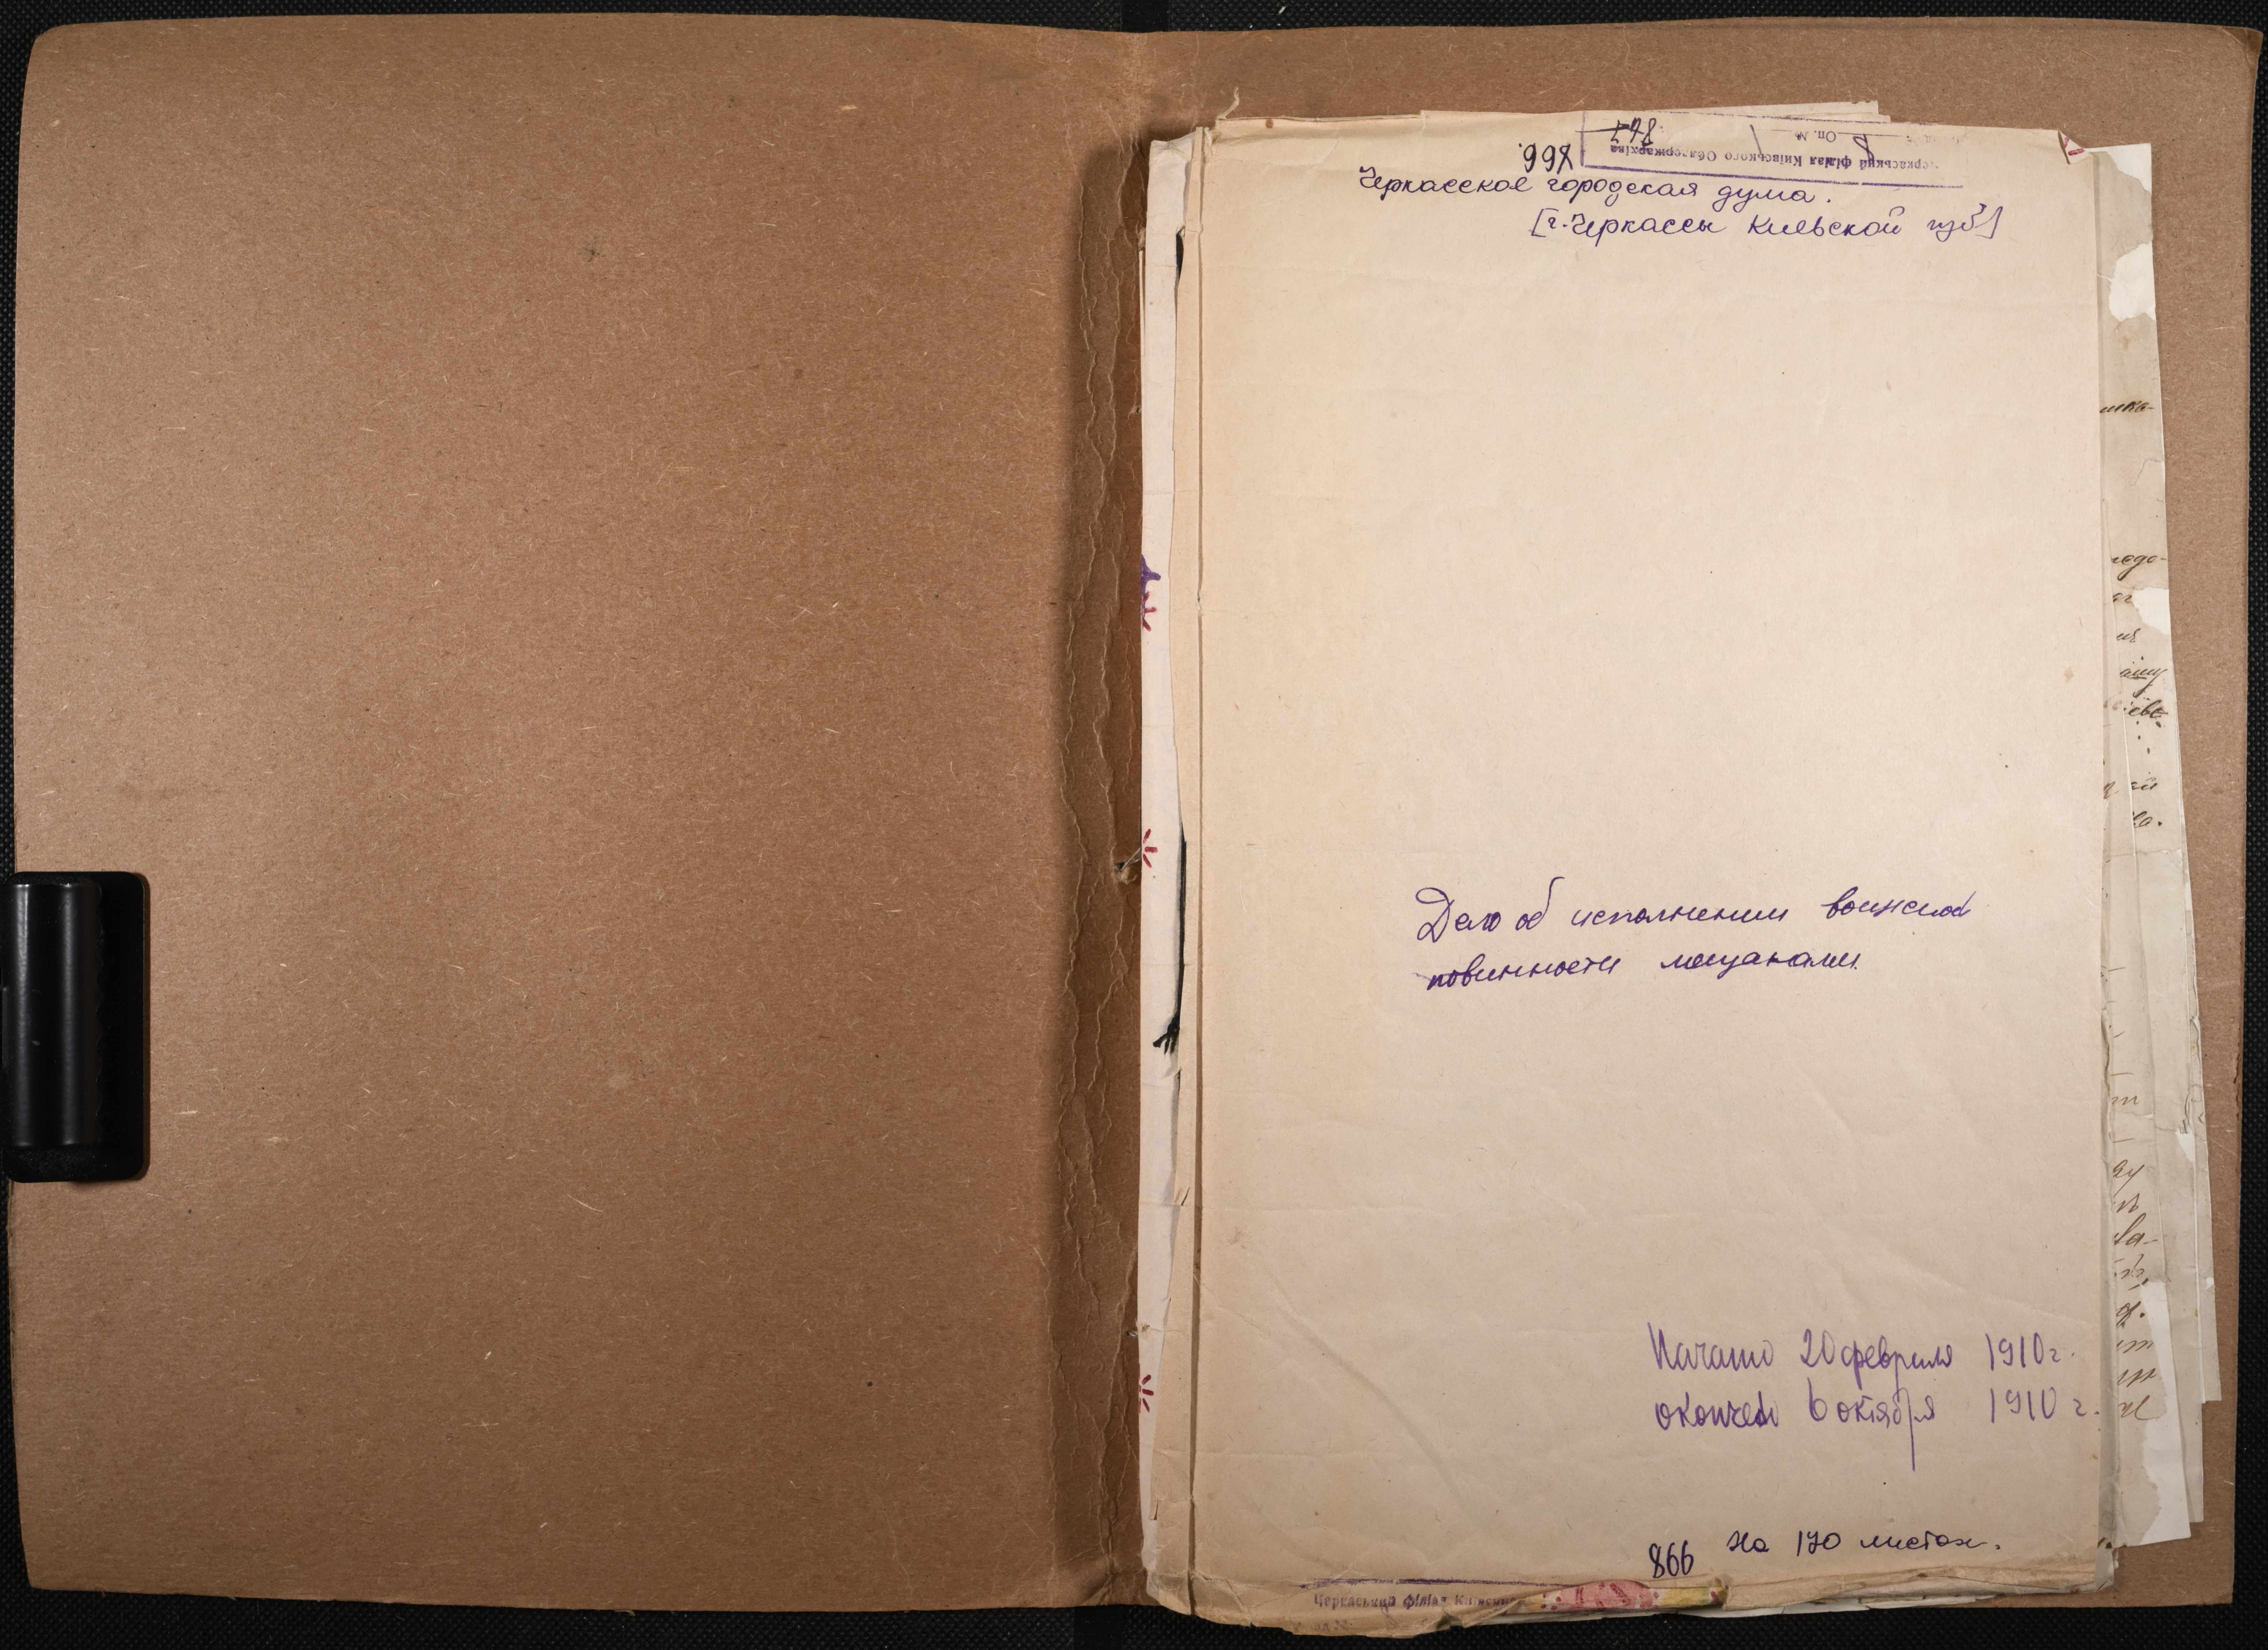 866.
Черкаський філіал Київського Облдержархіва
Оп. №
Черкасская городская дума.
[г. Черкассы Киевской губ]
Дело об исполнении воинской
повинности мещанами.
Начато 20 февраля 1910 г.
окончено 6 октября 1910 г.
866 На 170 листах.
Черкаський філіал